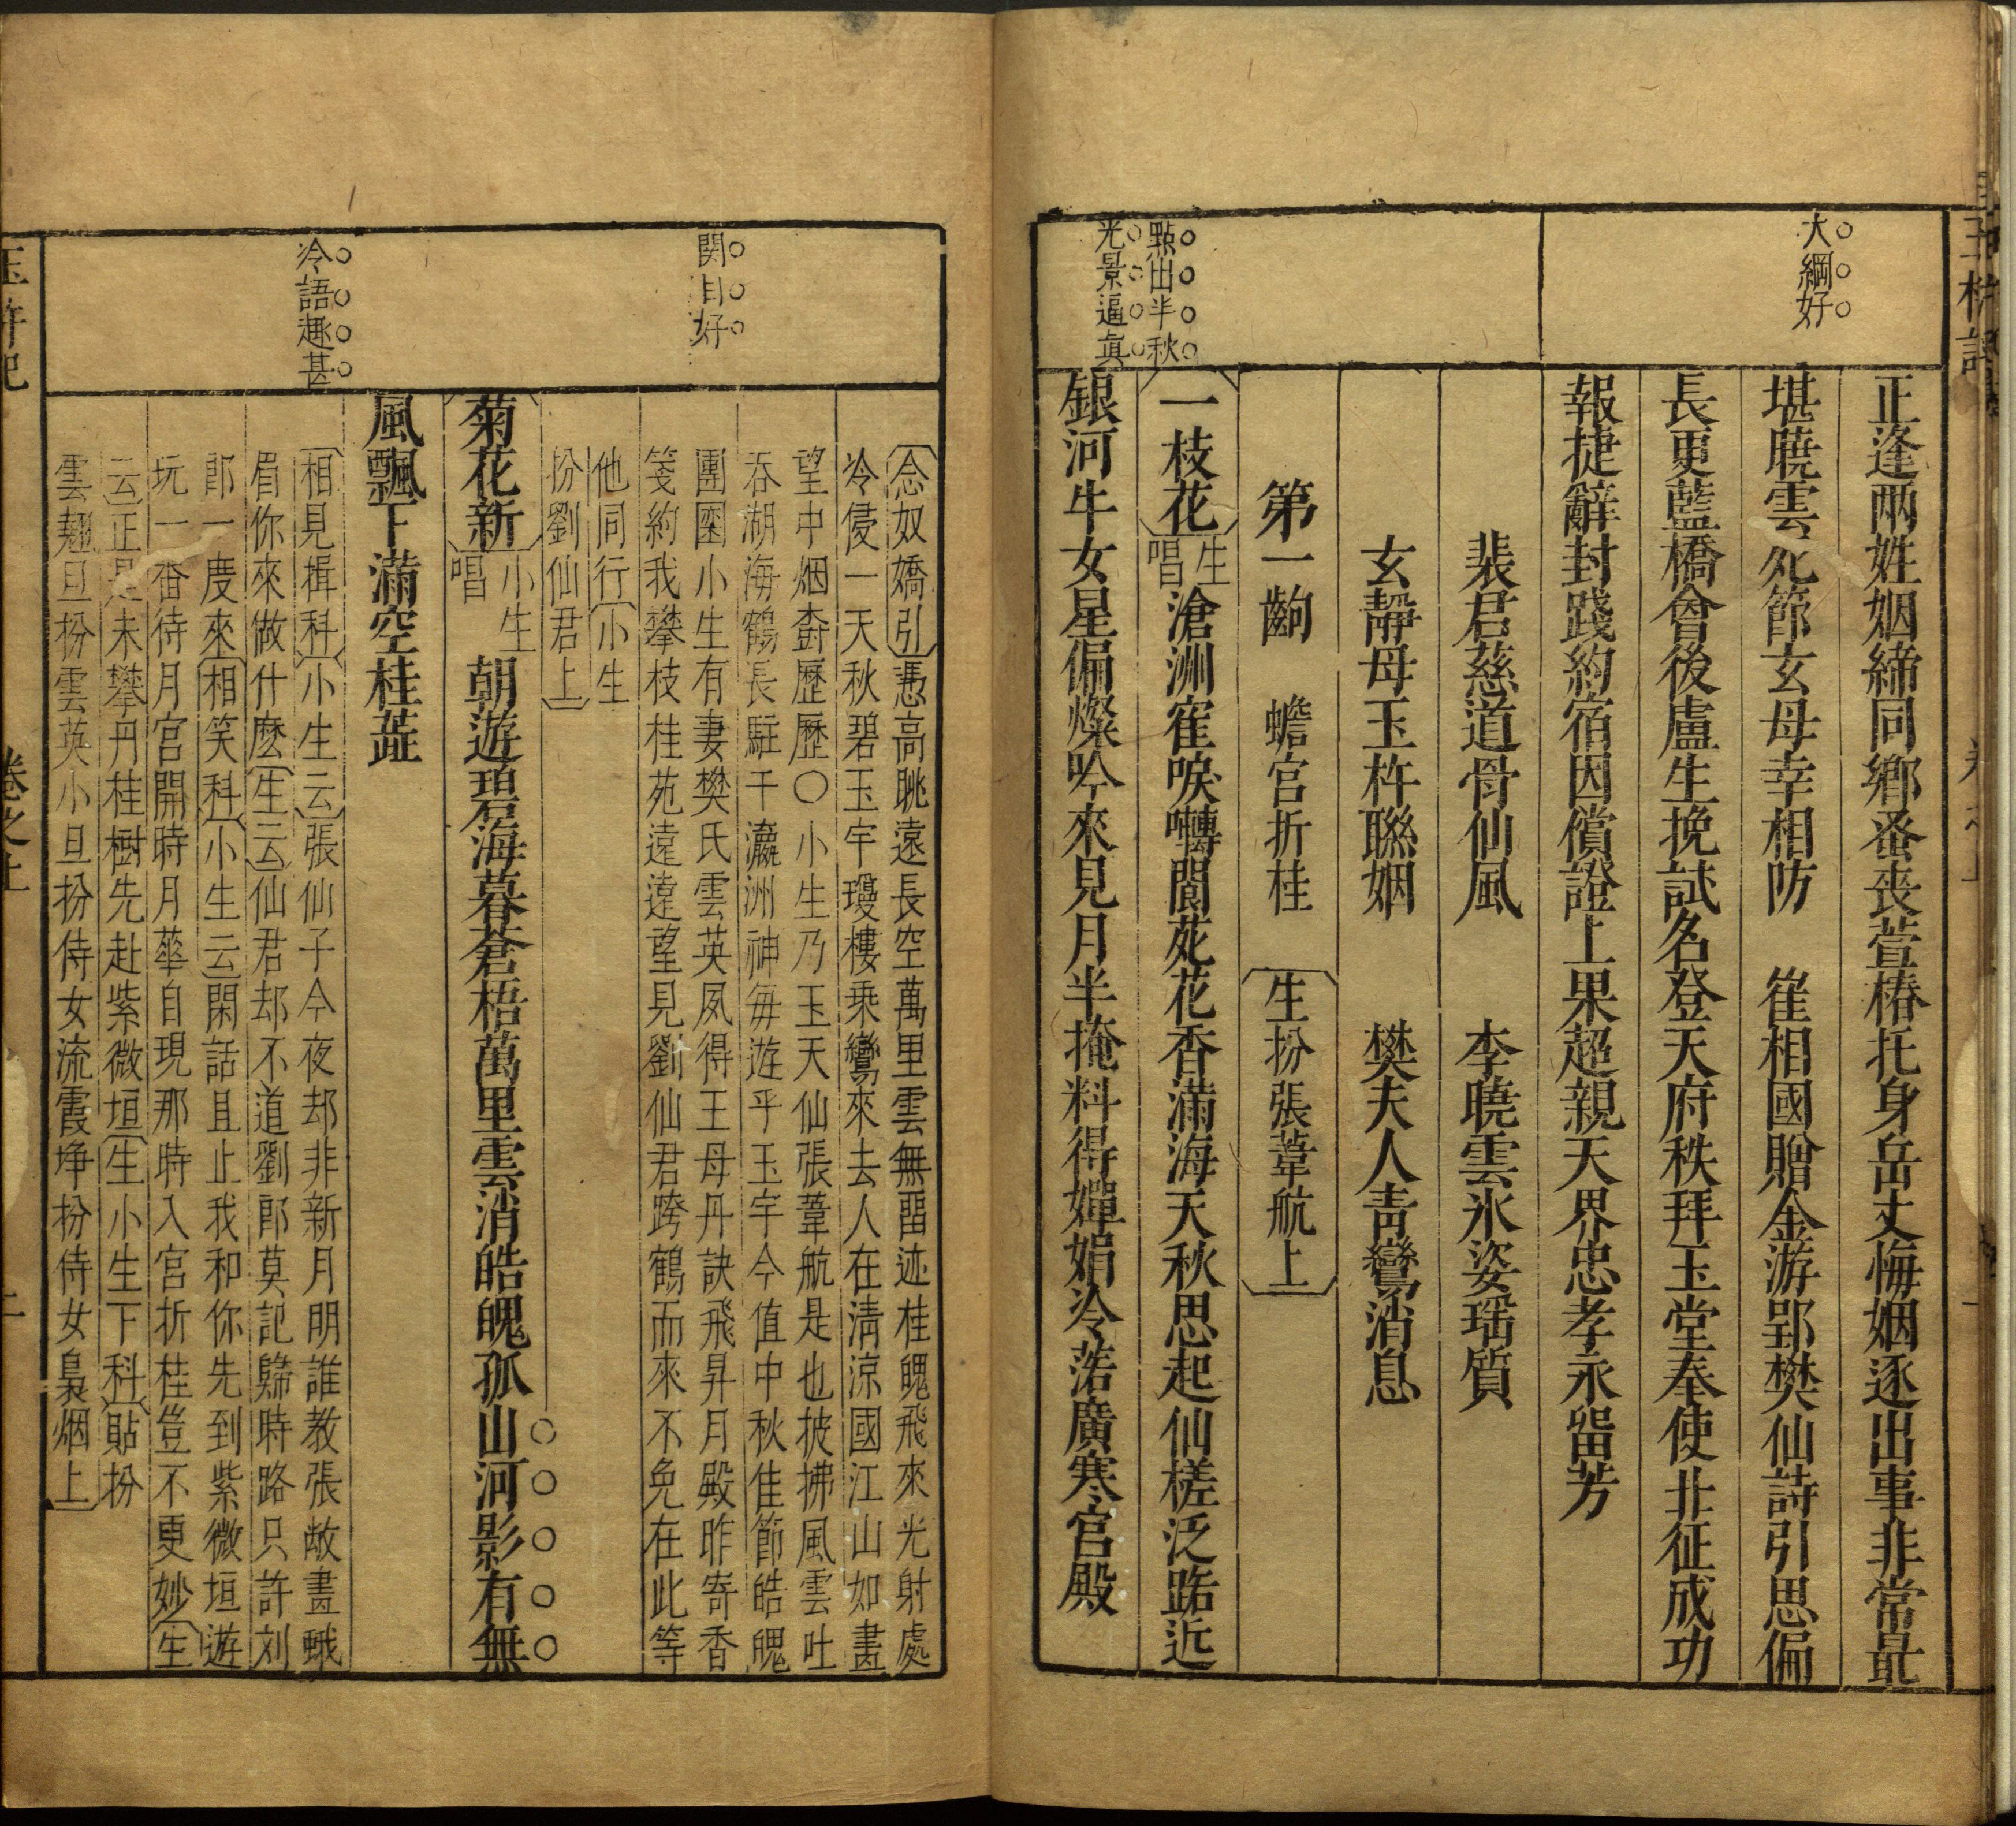 玉杵記
大綱好
正逢兩姓姻締同鄉蚤丧萱椿托身岳丈悔姻逐出事非常最
堪曉雲死節玄母幸相防　隺相國贈金游郢樊仙詩引思偏
長更藍橋會後盧生挽試名登天府秩拜玉堂奉使北征成功
報捷辭封踐約宿因償證上果超親天界忠孝永畱芳
裴君慈道骨仙風　李曉雲氷姿瑶質
玄靜母玉杵聯姻　樊夫人青鸞消息
第一齣　蟾宮折桂　〔生扮張葦航上〕
點出半秋
光景逼真
〔一枝花〕生唱滄洲寉唳囀閬苑花香滿海天秋思起仙槎泛踮近
銀河牛女星偏燦吟來見月半掩料得嬋娟冷落廣寒宫殿
〔念奴嬌引〕憑高眺遠長空萬里雲無畱迹桂魄飛來光射處
冷侵一天秋碧玉宇瓊樓乘鸞來去人在清凉國江山如畫
望中烟樹歷歷〇小生乃玉天仙張葦航是也披拂風雲吐
吞湖海鶴長駐千瀛洲神毎遊乎玉宇今值中秋佳節皓魄
團圞小生有妻樊氏雲英夙得王母丹訣飛昇月殿昨寄香
箋約我攀枝桂苑遠遠望見劉仙君跨鶴而來不免在此等
他同行〔小生
扮劉仙君上〕
関目好
〔菊花新〕小生唱朝遊碧海暮蒼梧萬里雲消皓魄孤山河影有無
風飄下滿空桂蕋
冷語趣甚
〔相見揖科〕〔小生云〕張仙子今夜却非新月明誰教張敞畫蛾
眉你來做什麽〔生云〕仙君却不道劉郎莫記歸時路只許刘
郎一度來〔相笑科〕〔小生云〕閑話且止我和你先到紫微垣遊
玩一番待月宫開時月華自現那時入宫折桂豈不更妙〔生
云〕正是未攀丹桂樹先赴紫微垣〔生小生下科〕〔貼扮
雲翹旦扮雲英小旦扮侍女流霞净扮侍女裊烟上〕
玉杵記
卷之上